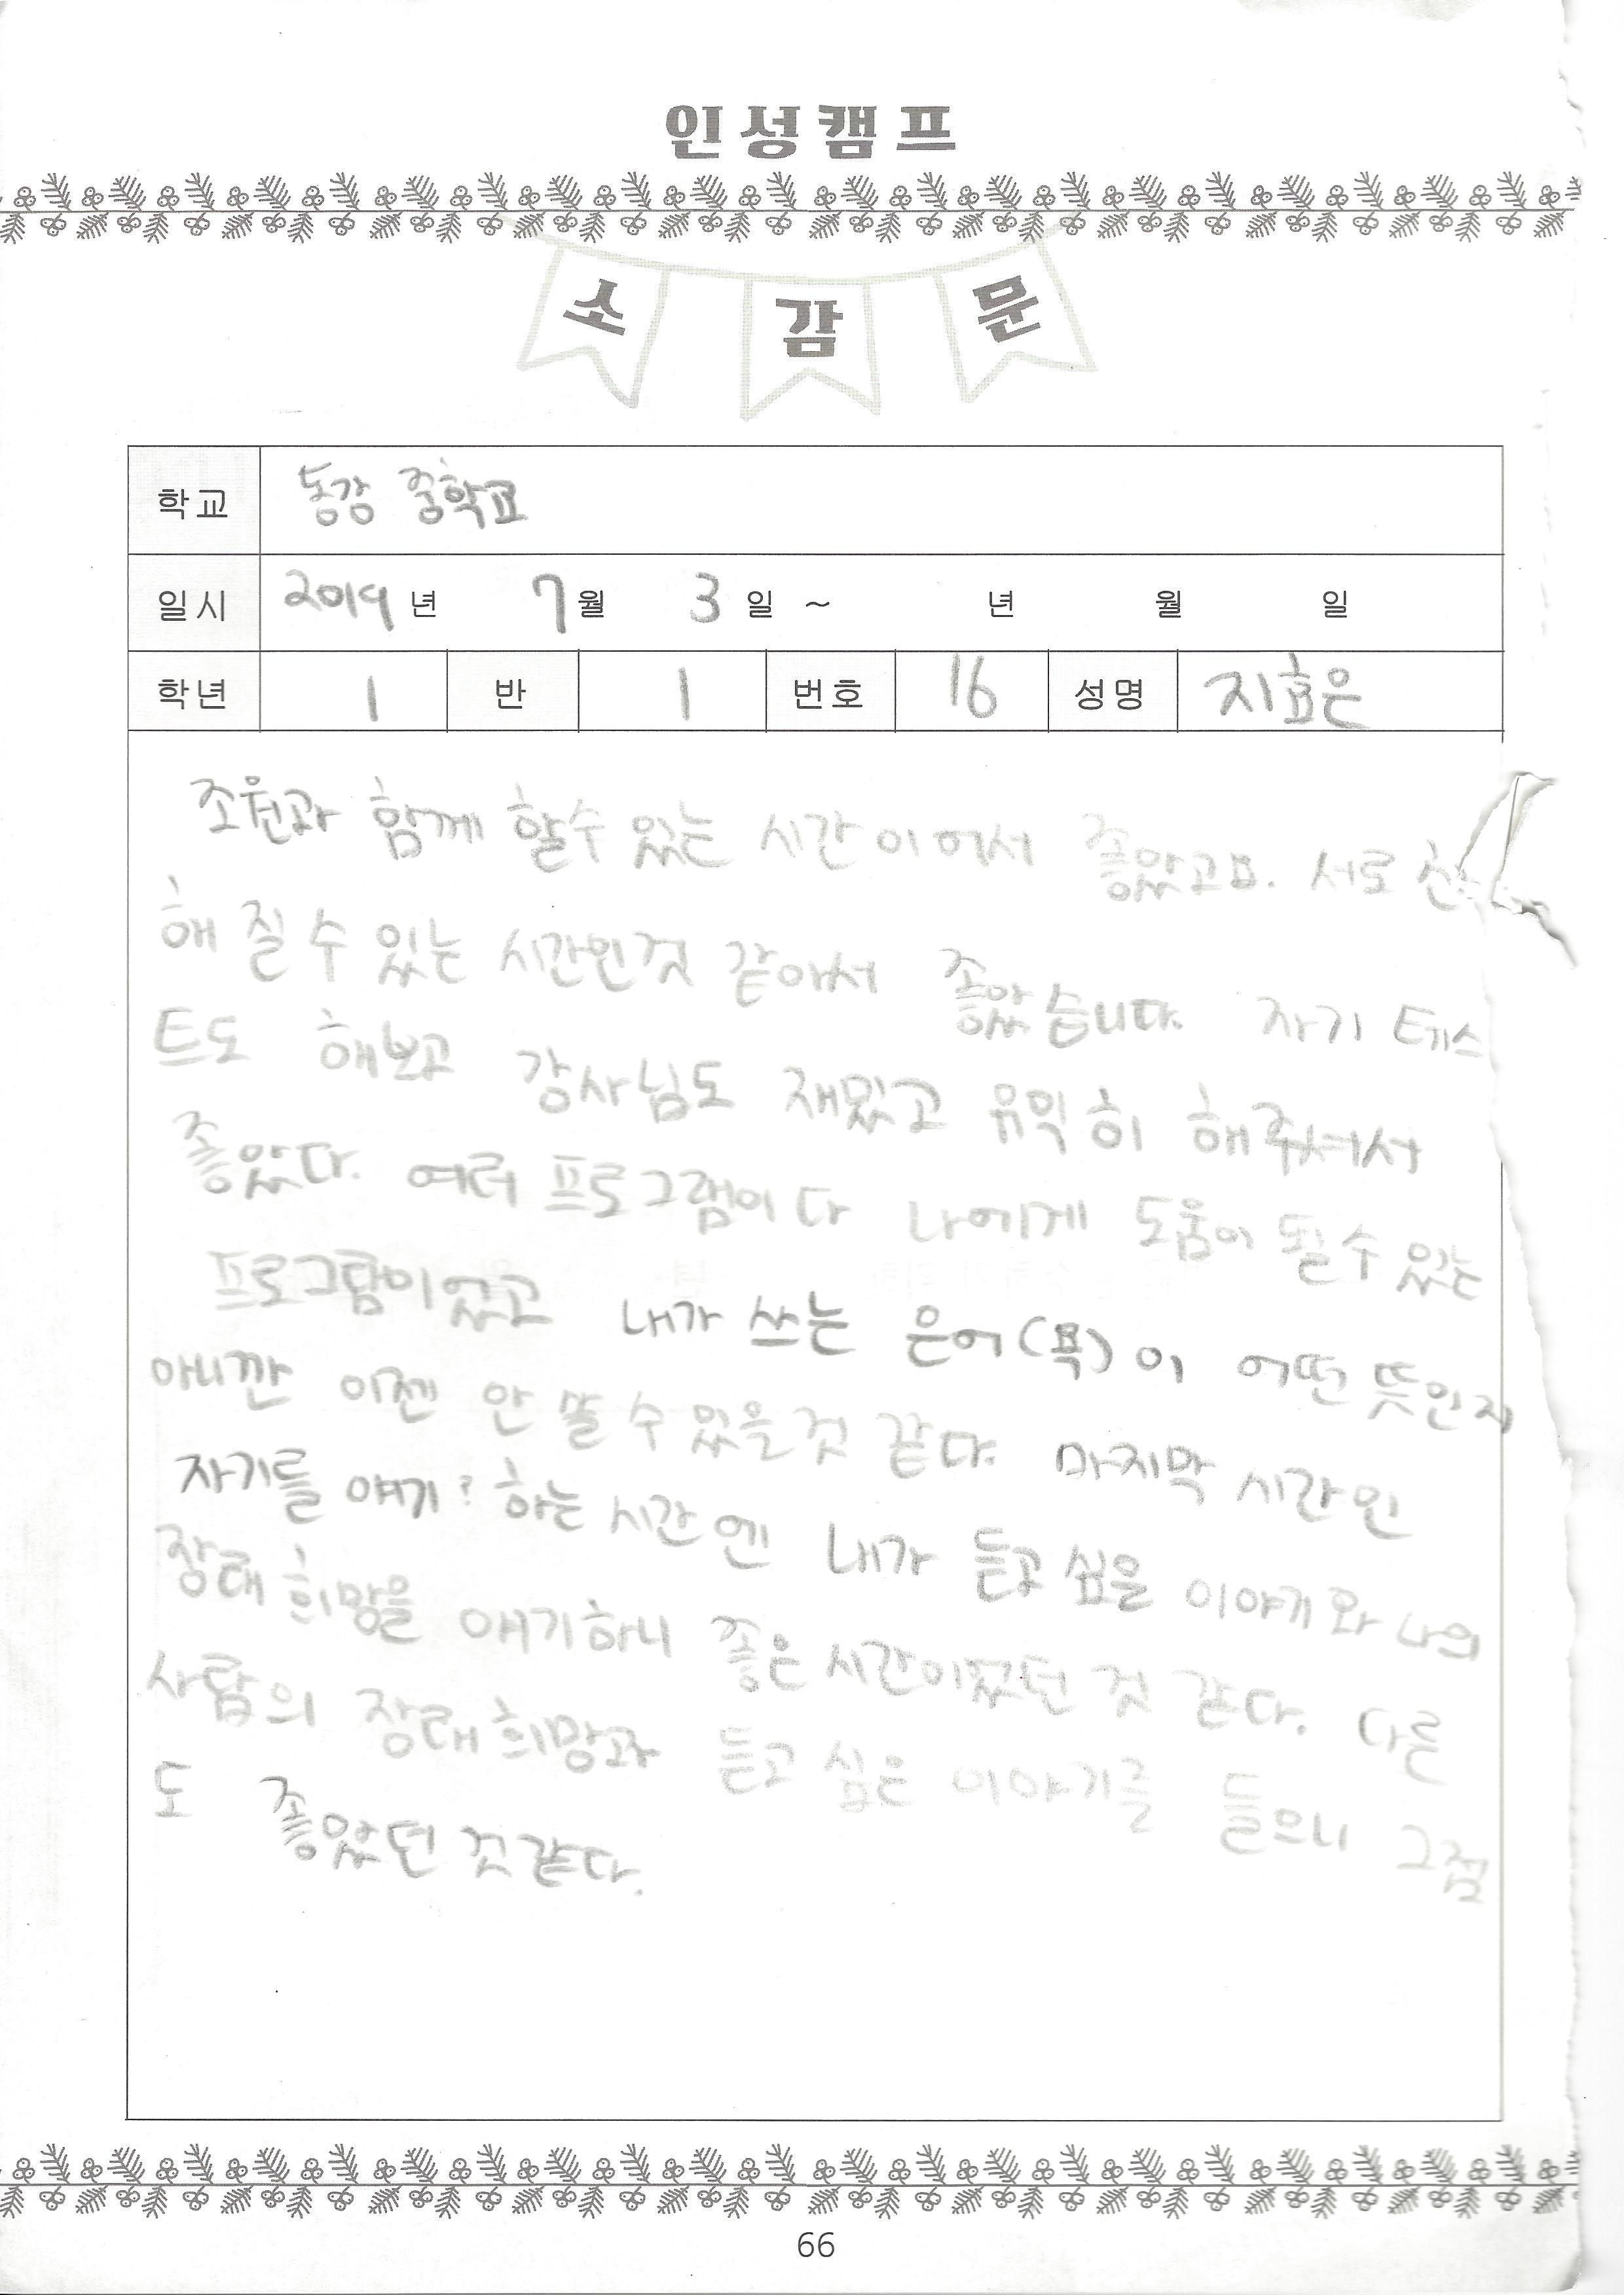 인성캠프
소감문
학교 동강 중학교
일시 2019년 7월 3일 ~ 년 월 일
학년 1 반 1 번호 16 성명 지효은
조원과 함께 할수 있는 시간이여서 좋았고요. 서로 친
해 질 수 있는 시간인것 같아서 좋았습니다. 자기 테스
트도 해보고 강사님도 재밌고 유익히 해주셔서
좋았다. 여러 프로그램이 다 나에게 도움이 될 수 있는
프로그램이였고 내가 쓰는 은어(욕)이 어떤 뜻인지
아니깐 이젠 안 쓸 수 있을것 같다. 마지막 시간인
자기를 얘기? 하는 시간엔 내가 듣고 싶은 이야기와 나의
장래희망을 얘기하니 좋은 시간이였던 것 같다. 다른
사람의 장래희망과 듣고 싶은 이야기를 들으니 그점
도 좋았던 것 같다.
66